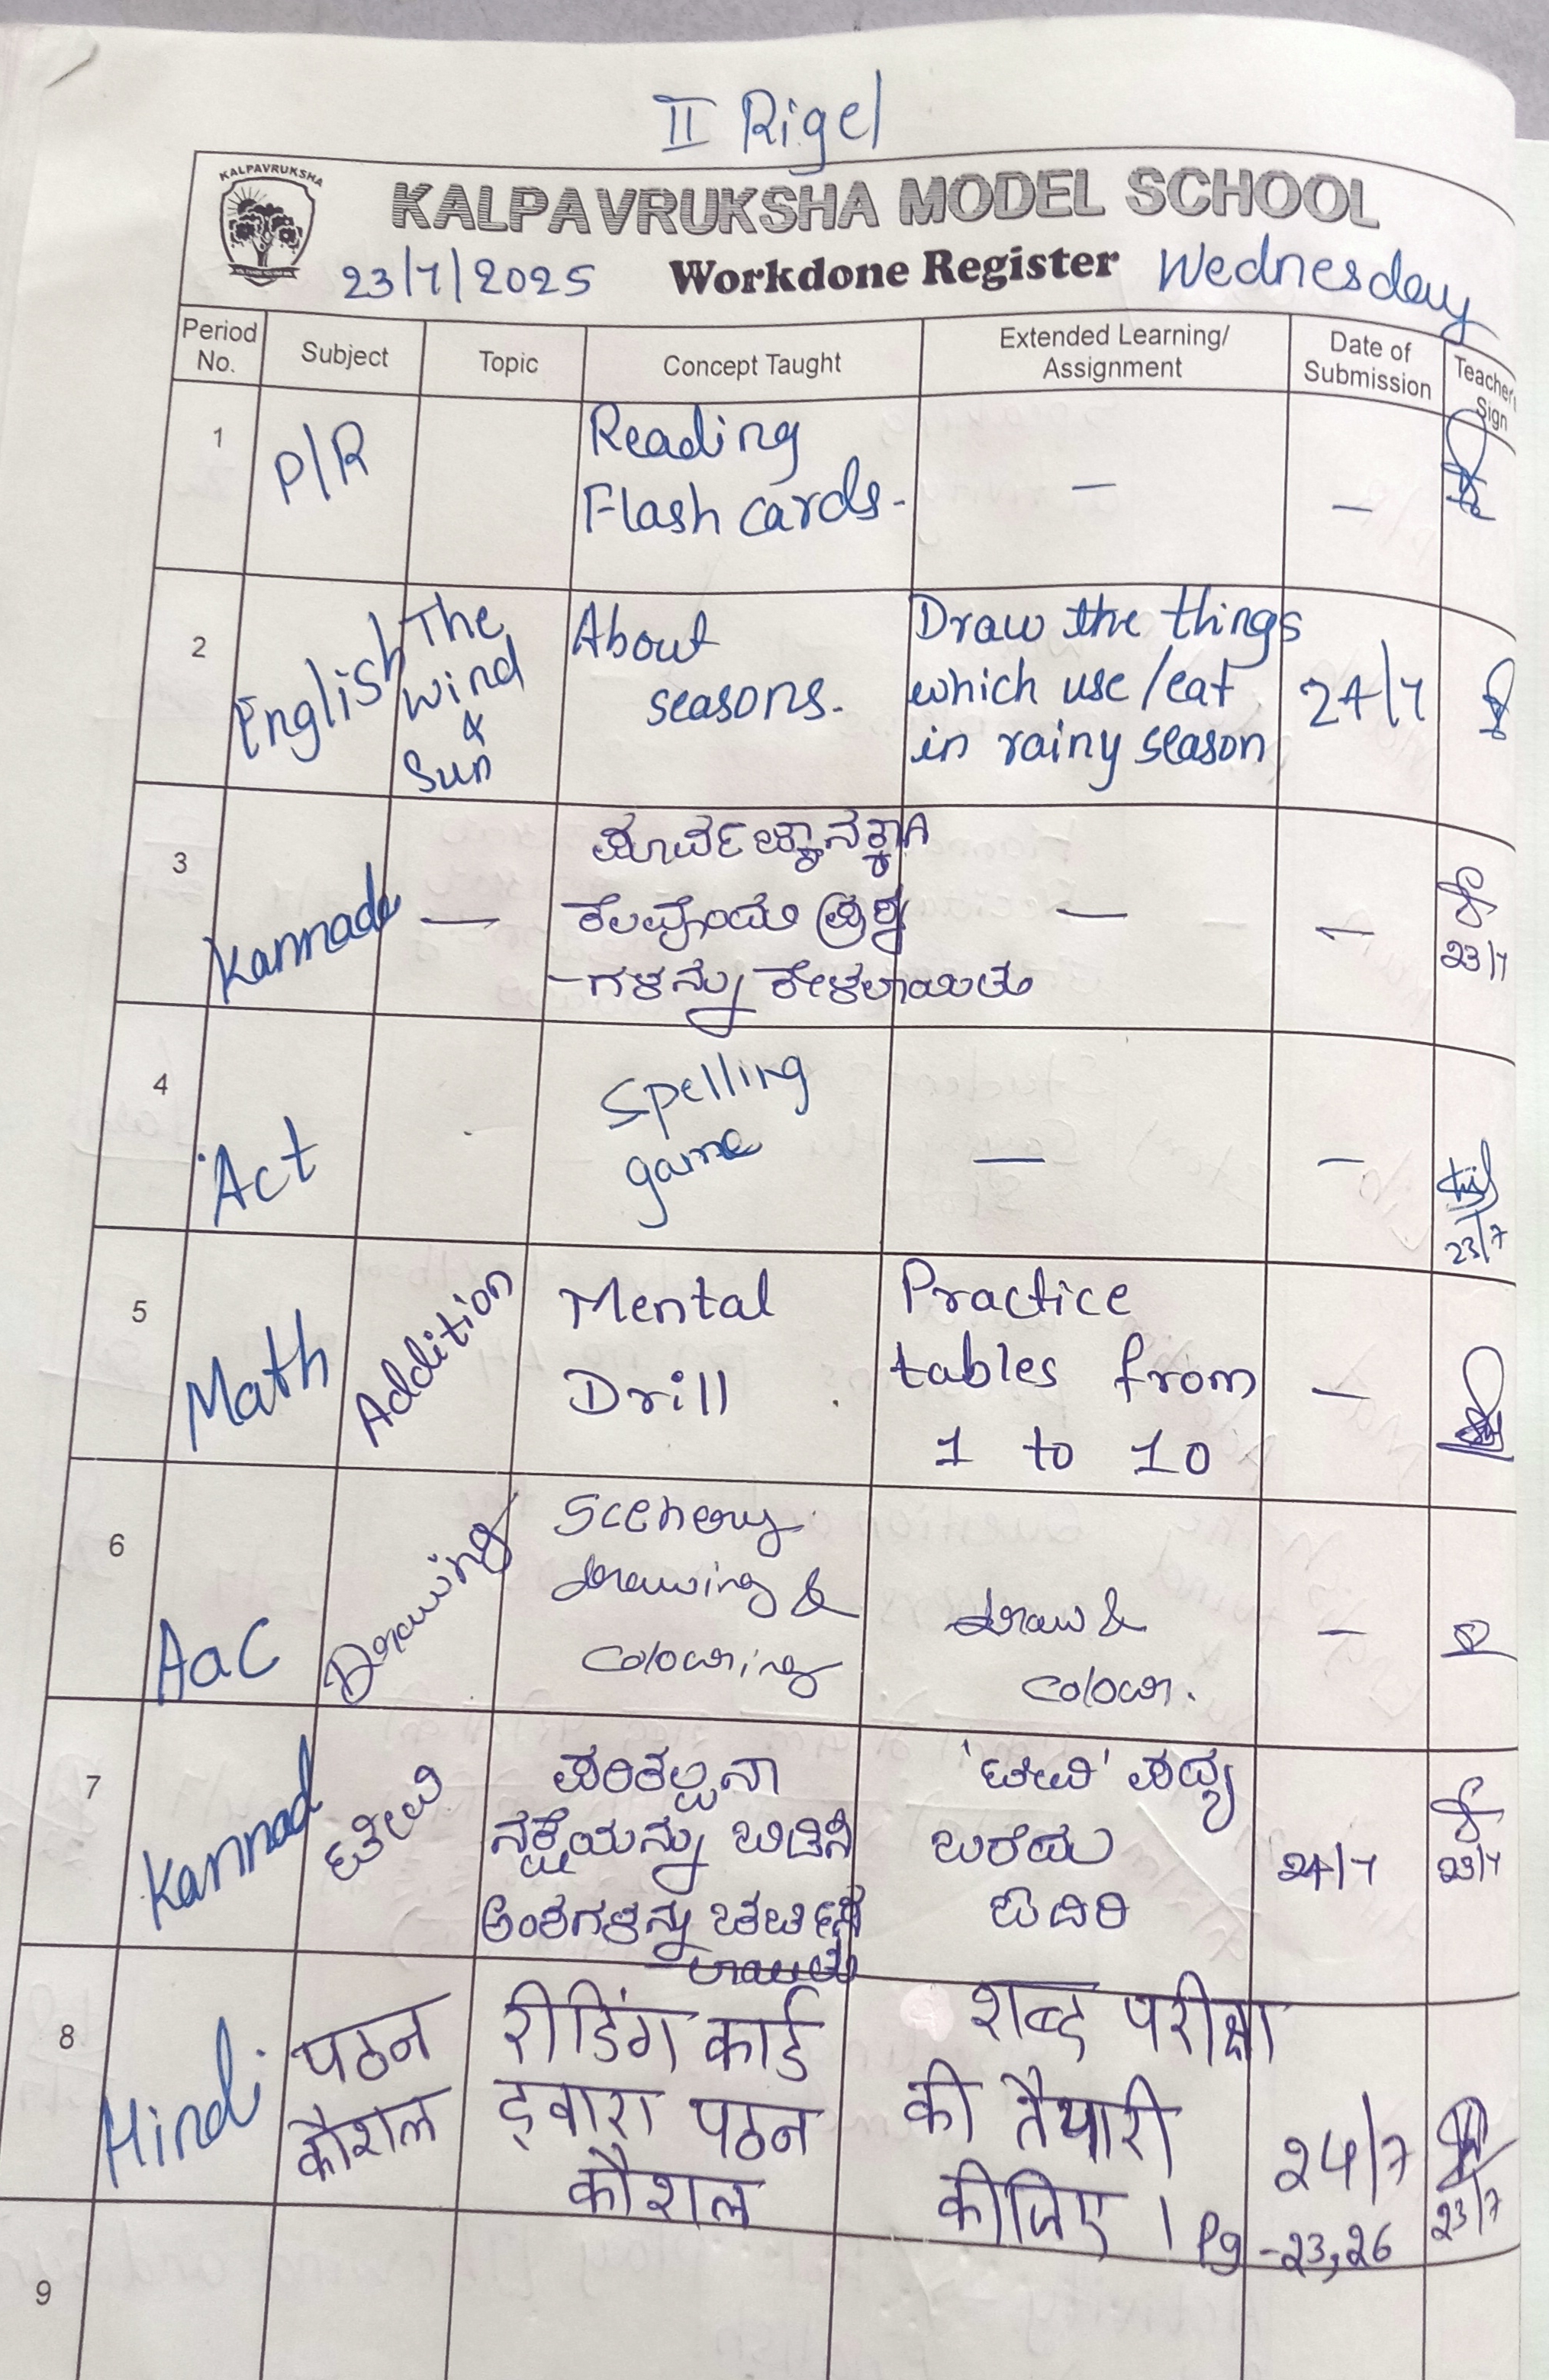 II Rigel
KALPAVRUKSHA
KALPAVRUKSHA MODEL SCHOOL
23/7/2025 Workdone Register Wednesday
Period No. Subject Topic Concept Taught Extended Learning/ Assignment Date of Submission Teacher's Sign
1 P/R Reading — —
Flash cards.
2 English The Wind & Sun About Draw the things 24/7
seasons. which use/eat
in rainy season
3 Kannada — ಪೂರ್ವಜ್ಞಾನಕ್ಕಾಗಿ — — 23/7
ಕೆಲವೊಂದು ಪ್ರಶ್ನೆ
-ಗಳನ್ನು ಕೇಳಲಾಯಿತು
4 Act Spelling — — 23/7
game
5 Math Addition Mental Practice —
Drill tables from
1 to 10
6 AaC Drawing Scenery draw & —
drawing & colour.
colouring
7 Kannad ಪರಿಕಲ್ಪನಾ ಪದ್ಯ 24/7 23/7
ನಕ್ಷೆಯನ್ನು ಬಿಡಿಸಿ ಬರೆದು
ಅಂಶಗಳನ್ನು ಚರ್ಚಿಸ ಓದಿರಿ
ಲಾಯಿತು
8 Hindi पठन रीडिंग कार्ड शब्द परीक्षा 24/7 23/7
कौशल द्वारा पठन की तैयारी
कौशल कीजिए । Pg - 23, 26
9